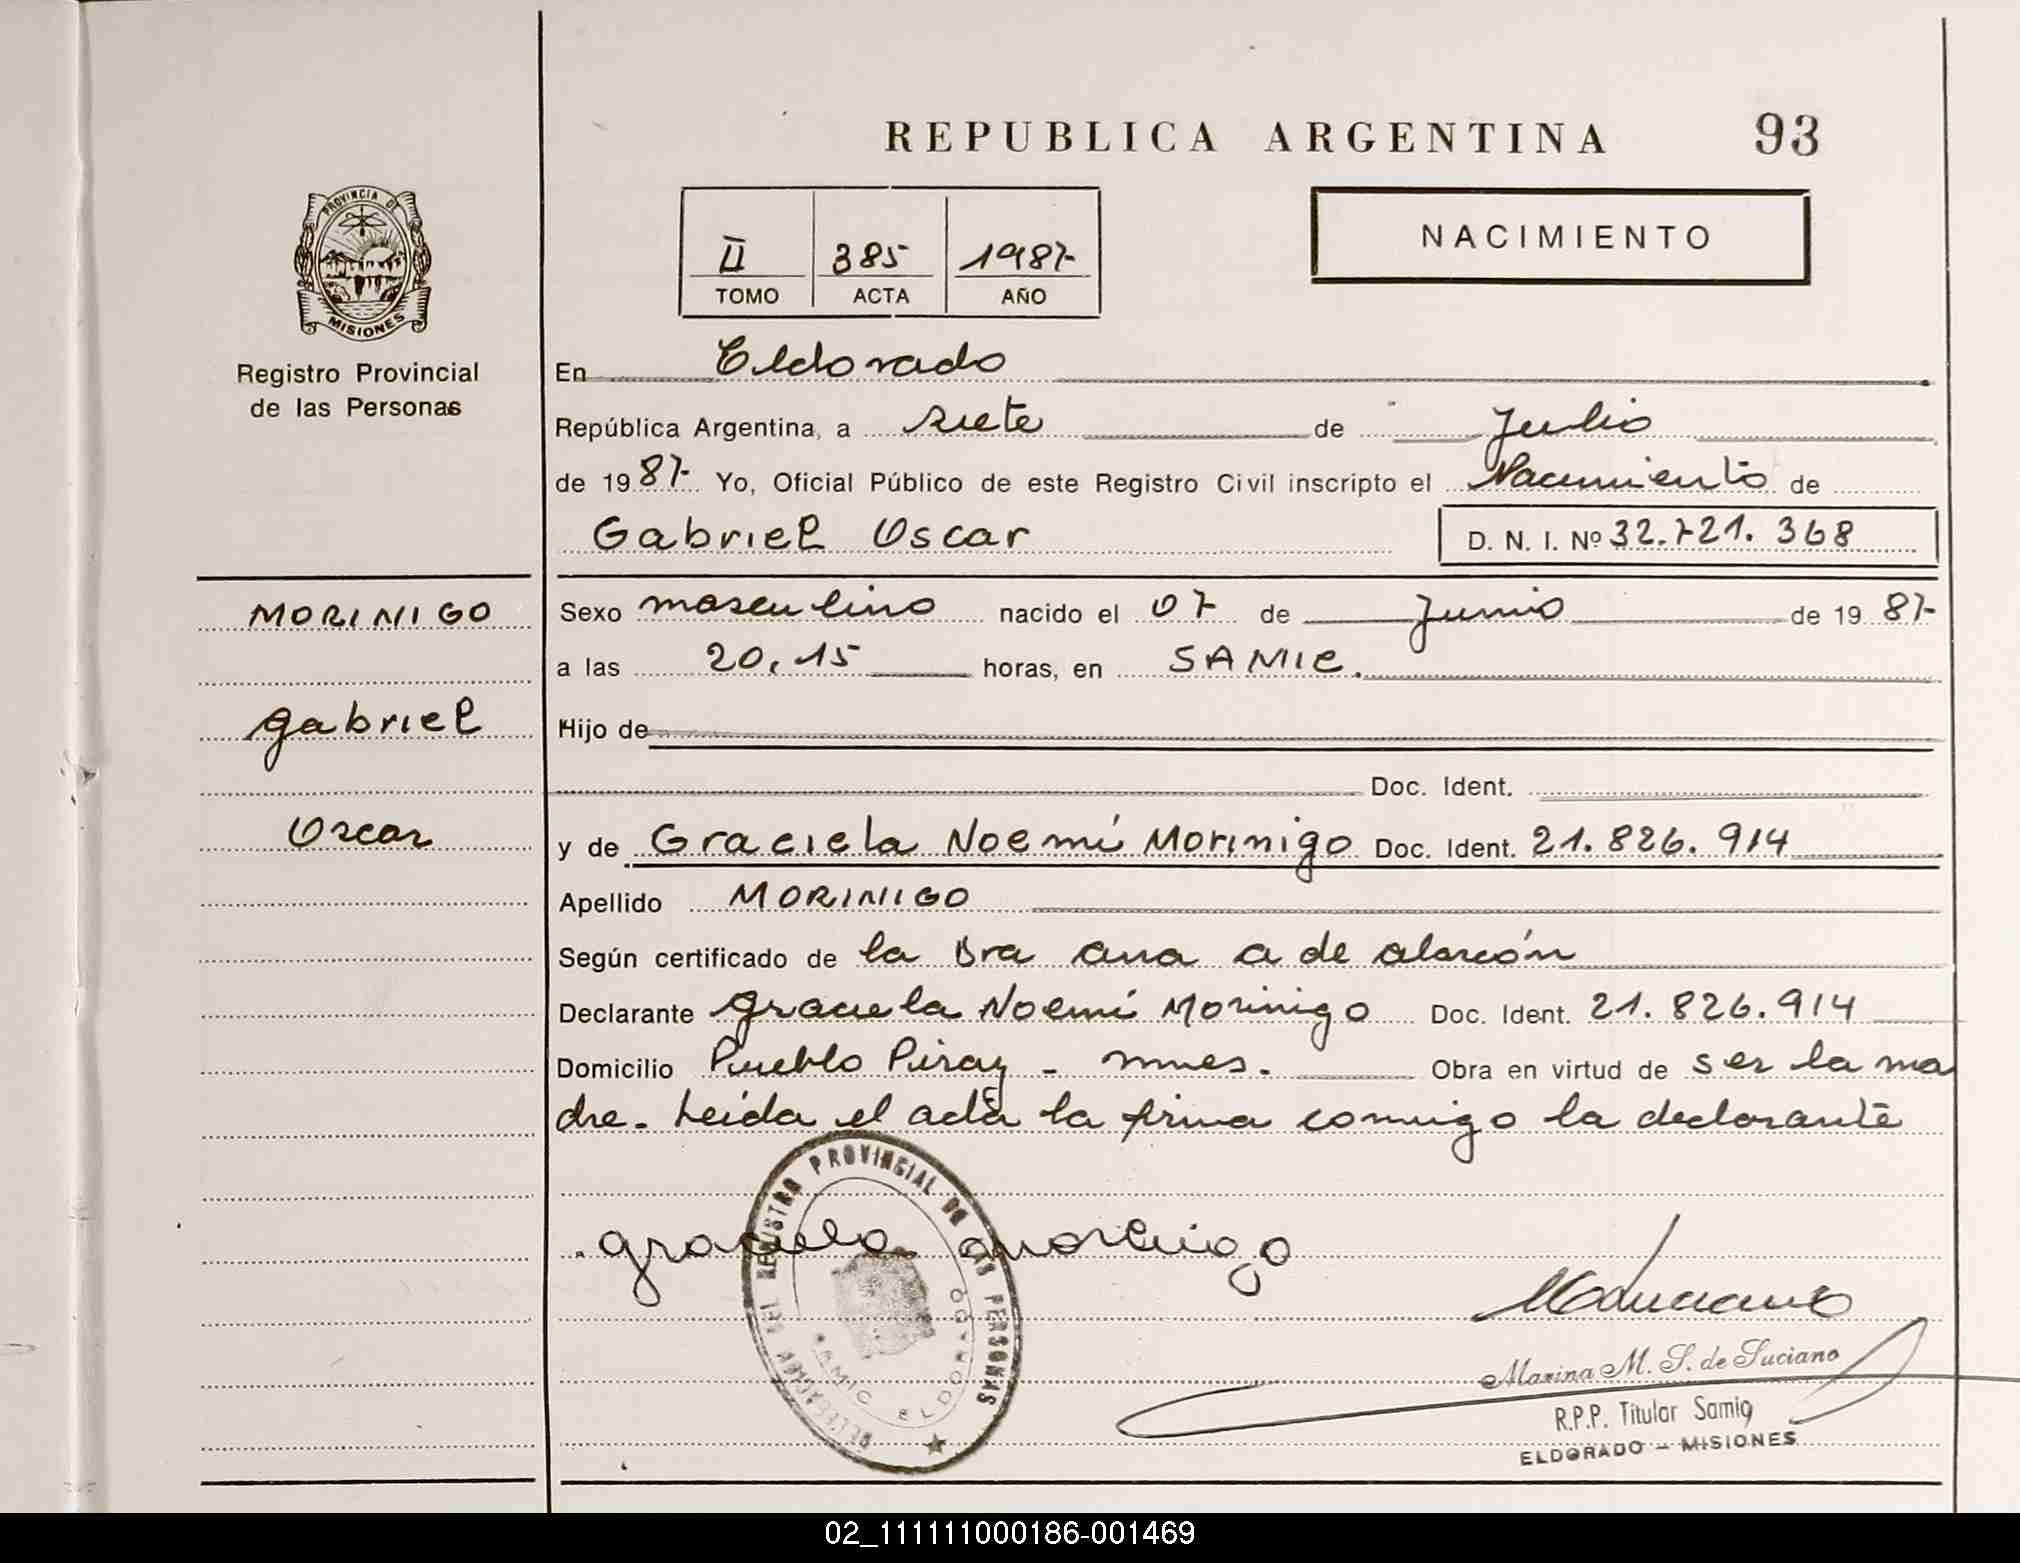 REPUBLICA ARGENTINA 93
PROVINCIA DE
MISIONES
Registro Provincial
de las Personas
II 385 1987
TOMO ACTA AÑO
NACIMIENTO
En Eldorado
República Argentina, a siete de Julio
de 1987 Yo, Oficial Público de este Registro Civil inscripto el Nacimiento de
Gabriel Oscar D. N. I. Nº 32.721.368
MORINIGO
Gabriel
Oscar
Sexo masculino nacido el 07 de Junio de 1987
a las 20,15 horas, en SAMIC.
Hijo de
Doc. Ident.
y de Graciela Noemí Morinigo Doc. Ident. 21.826.914
Apellido MORINIGO
Según certificado de la Dra Ana A de Alarcón
Declarante Graciela Noemí Morinigo Doc. Ident. 21.826.914
Domicilio Pueblo Piray - mnes. Obra en virtud de ser la ma
dre. Leída el acta la firma conmigo la declarante
Graciela Morinigo
DELEGACION DEL REGISTRO PROVINCIAL DE LAS PERSONAS
SAMIC ELDORADO
Marina M. S. de Luciano
R.P.P. Titular Samic
ELDORADO - MISIONES
02_111111000186-001469